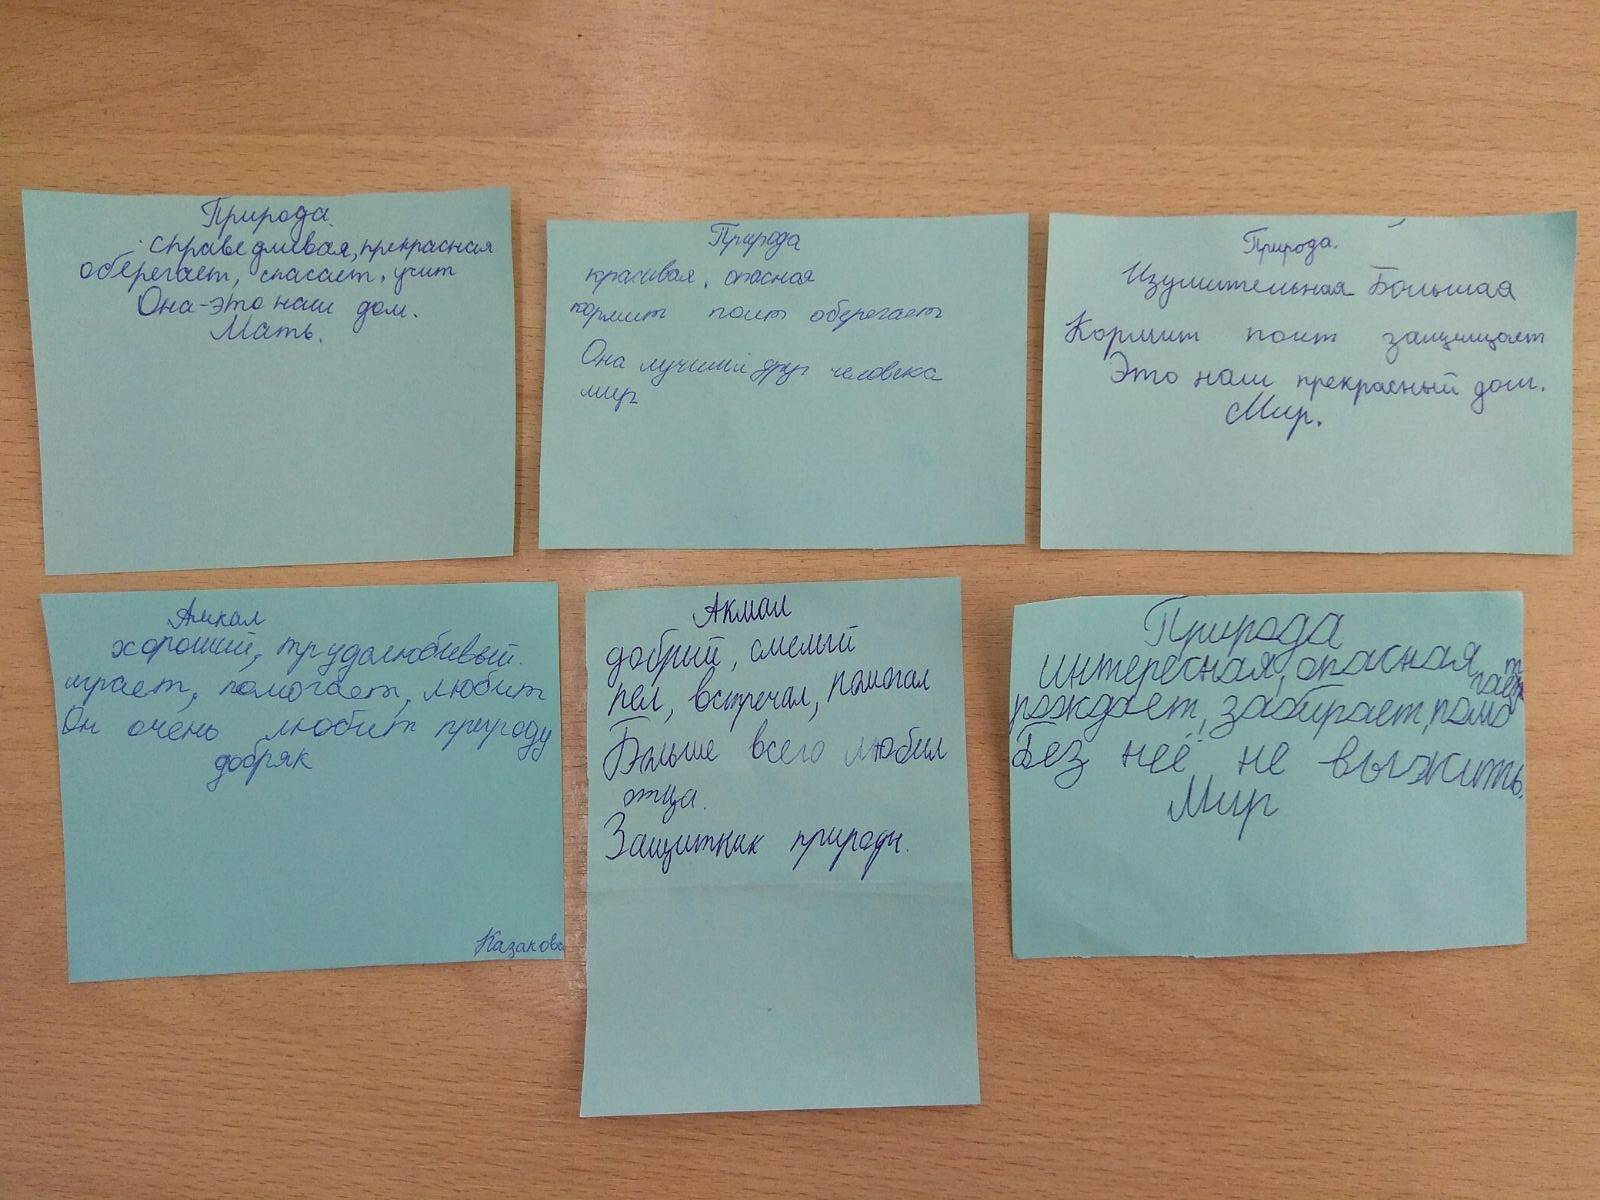 Природа.
справедливая, прекрасная
оберегает, спасает, учит
Она-это наш дом.
Мать.
Природа
красивая, опасная
кормит поит оберегает
Она лучший друг человека
мир
Природа.
Изумительная Большая
Кормит поит защищает
Это наш прекрасный дом.
Мир.
Амкал
хороший, трудолюбивый.
играет, помогает, любит
Он очень любит природу
добряк
Казакова
Акмал
добрий, смелий
пел, встречал, помогал
Больше всего любил
отца.
Защитник природи.
Природа
интересная, опасная
рождает, забирает, помогает
Без неё не выжить.
Мир